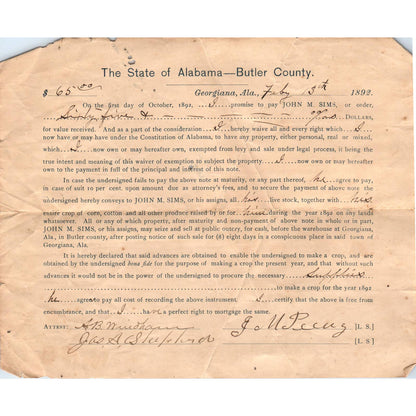 The State of Alabama—Butler County.
$ 65.00 Georgiana, Ala., Feby 13th 1892.
On the first day of October, 1892, I promise to pay JOHN M. SIMS, or order,
Sixty five & — — — — — DOLLARS,
for value received. And as a part of the consideration I hereby waive all and every right which I
now have under the Constitution of Alabama, to have any property, either personal, real or mixed,
which I now own or may have hereafter own, exempted from levy and sale under legal process, it being the
true intent and meaning of this waiver of exemption to subject the property I now own or may hereafter
own to the payment in full of the principal and interest of this note.
In case the undersigned fails to pay the above note at maturity, or any part thereof, he agree to pay,
in case of suit 10 per cent. upon amount due as attorney's fees, and to secure the payment of above note the
undersigned hereby conveys to JOHN M. SIMS, or his assigns, all his live stock, together with his
entire crop of corn, cotton and all other produce raised by or for him during the year 1892 on any land
whatsoever. All or any of which property, after maturity and non-payment of above note in whole or in part,
JOHN M. SIMS, or his assigns, may seize and sell at public outcry, for cash, before the warehouse at Georgiana,
in Butler county, after posting notice of such sale for (8) eight days in a conspicuous place in said town of
Georgiana, Ala.
It is hereby declared that said advances are obtained to enable the undersigned to make a crop, and are
obtained by the undersigned bona fide for the purpose of making a crop the present year, and that without such
advances it would not be in the power of the undersigned to procure the necessary Supplies
to make a crop for the year 1892
he agrees to pay all cost of recording the above instrument. I certify that the above is free from
encumbrance, and that I have a perfect right to mortgage the same.
ATTEST: A B Windham J M [L. S.]
Jas A Shepherd [L. S]